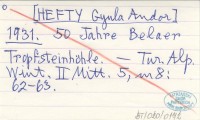 [HEFTY Gyula Andor]
1931. 50 Jahre Belaer
Tropfsteinhöhle. — Tur. Alp.
Wint. II Mitt. 5, № 8:
62-63.